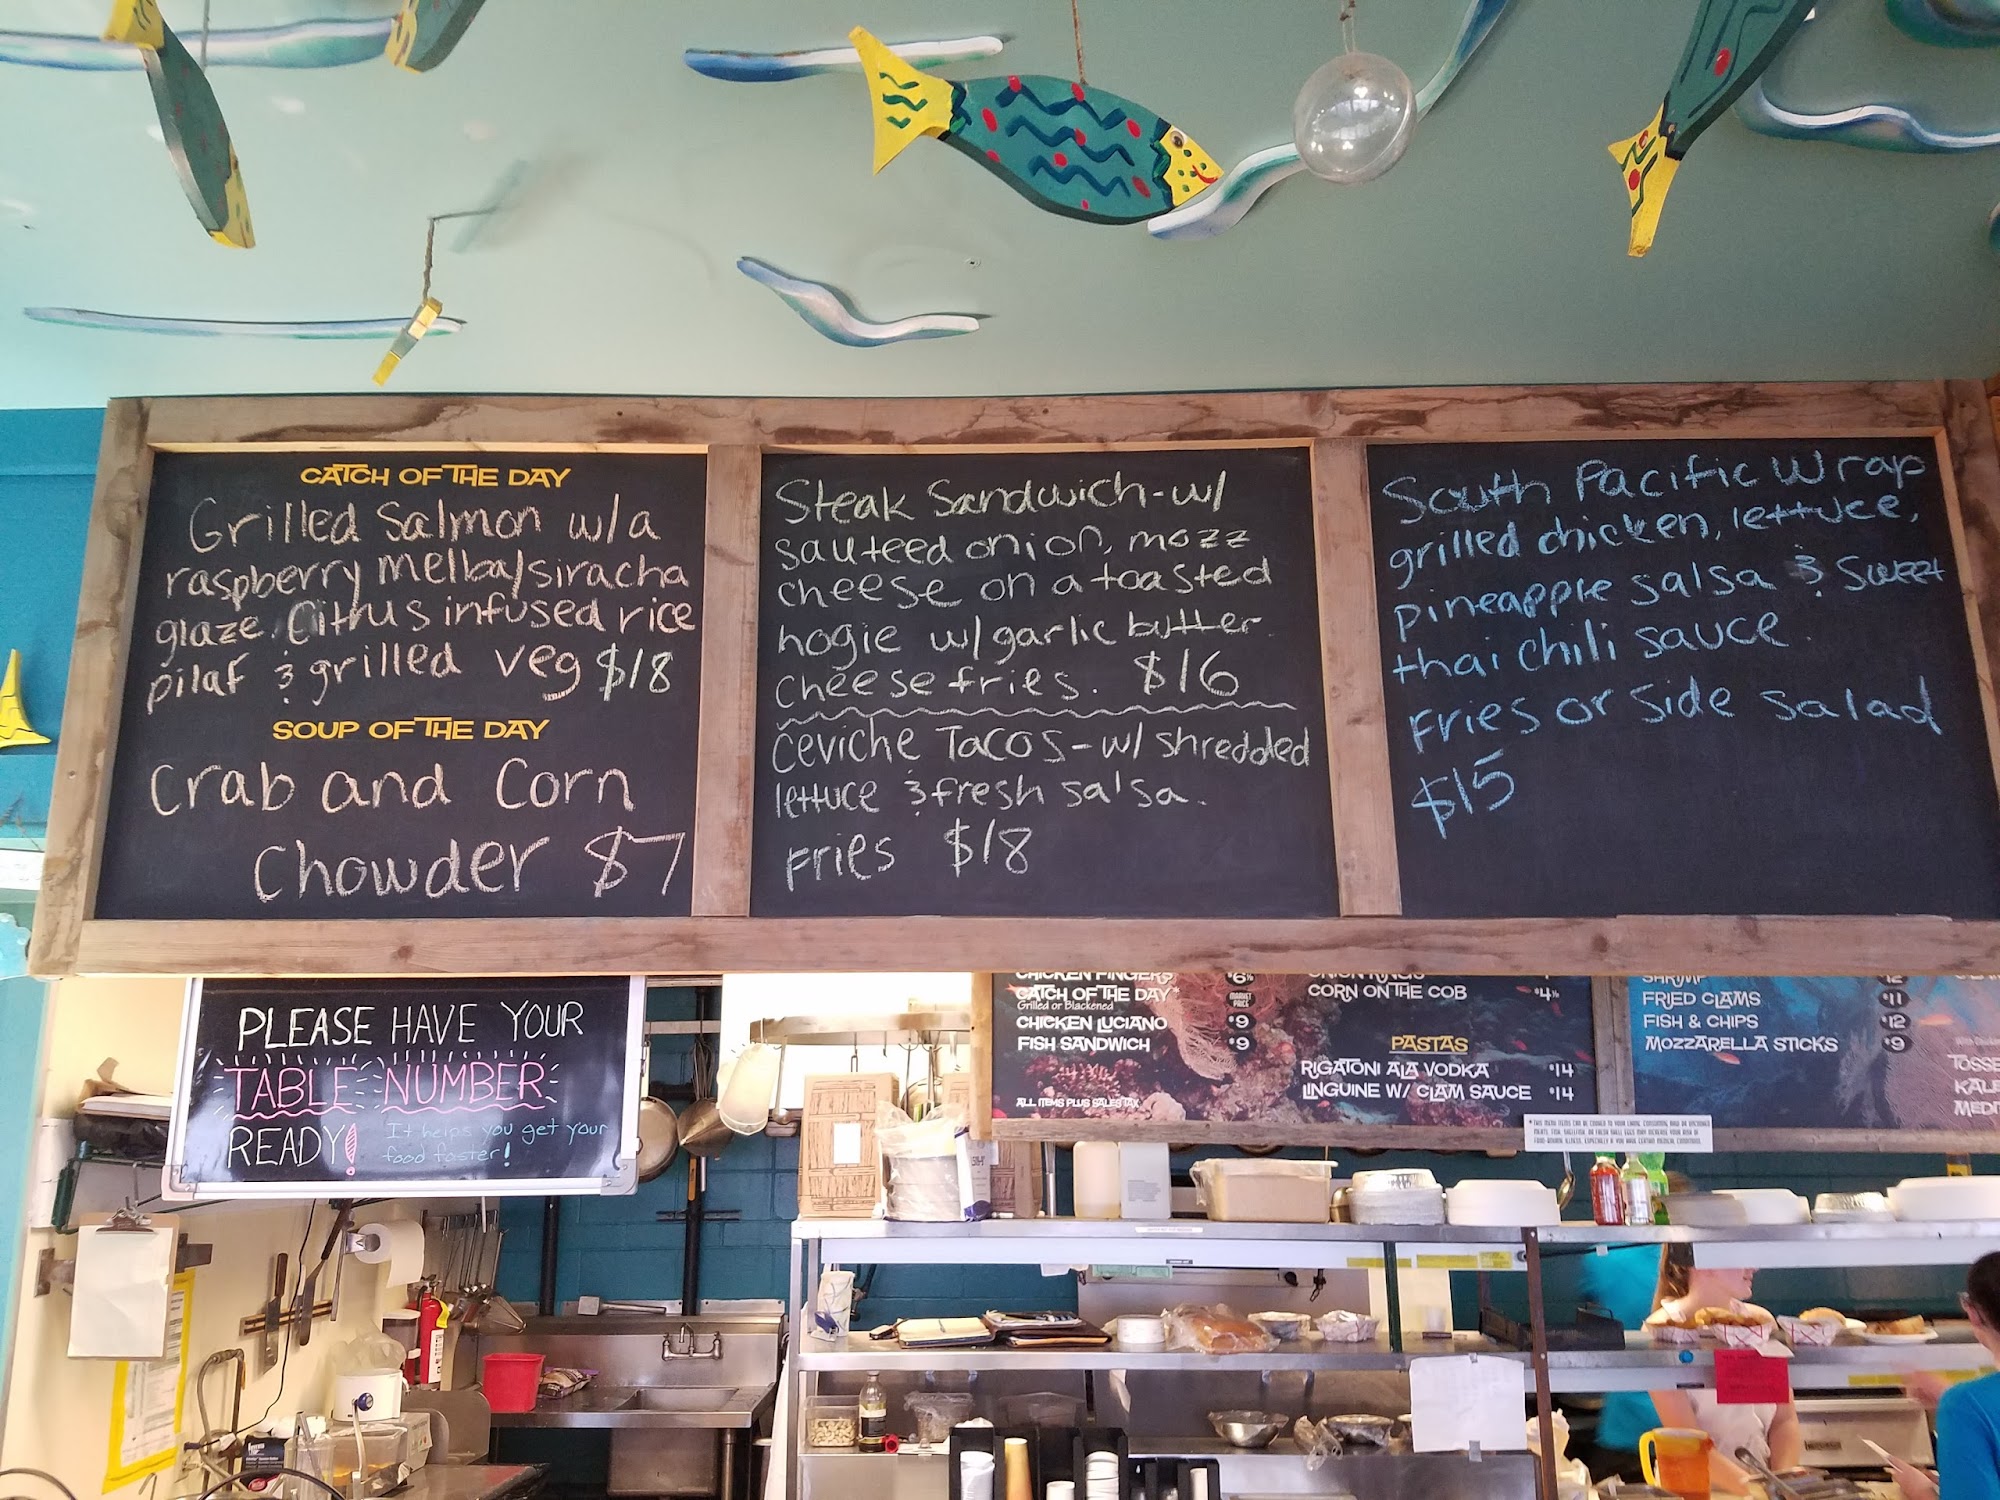 CATCH OF THE DAY
Grilled Salmon w/a
raspberry melba/siracha
glaze. Citrus infused rice
pilaf & grilled veg $18
SOUP OF THE DAY
Crab and Corn
Chowder $7
Steak Sandwich-w/
sauteed onion, mozz
cheese on a toasted
hogie w/garlic butter.
Cheese fries. $16
Ceviche Tacos-w/ shredded
lettuce & fresh salsa.
Fries $18
South Pacific Wrap
grilled chicken, lettuce,
pineapple salsa & sweet
thai chili sauce.
Fries or side salad
$15
PLEASE HAVE YOUR
TABLE NUMBER
READY! It helps you get your
food faster!
CHICKEN FINGERS
CATCH OF THE DAY* MARKET PRICE
Grilled or Blackened
CHICKEN LUCIANO $9
FISH SANDWICH $9
ALL ITEMS PLUS SALES TAX
ONION RINGS
CORN ON THE COB
PASTAS
RIGATONI ALA VODKA $14
LINGUINE W/ CLAM SAUCE $14
SHRIMP 12
FRIED CLAMS $11
FISH & CHIPS $12
MOZZARELLA STICKS $9
TOSSE
KALE
MEDI